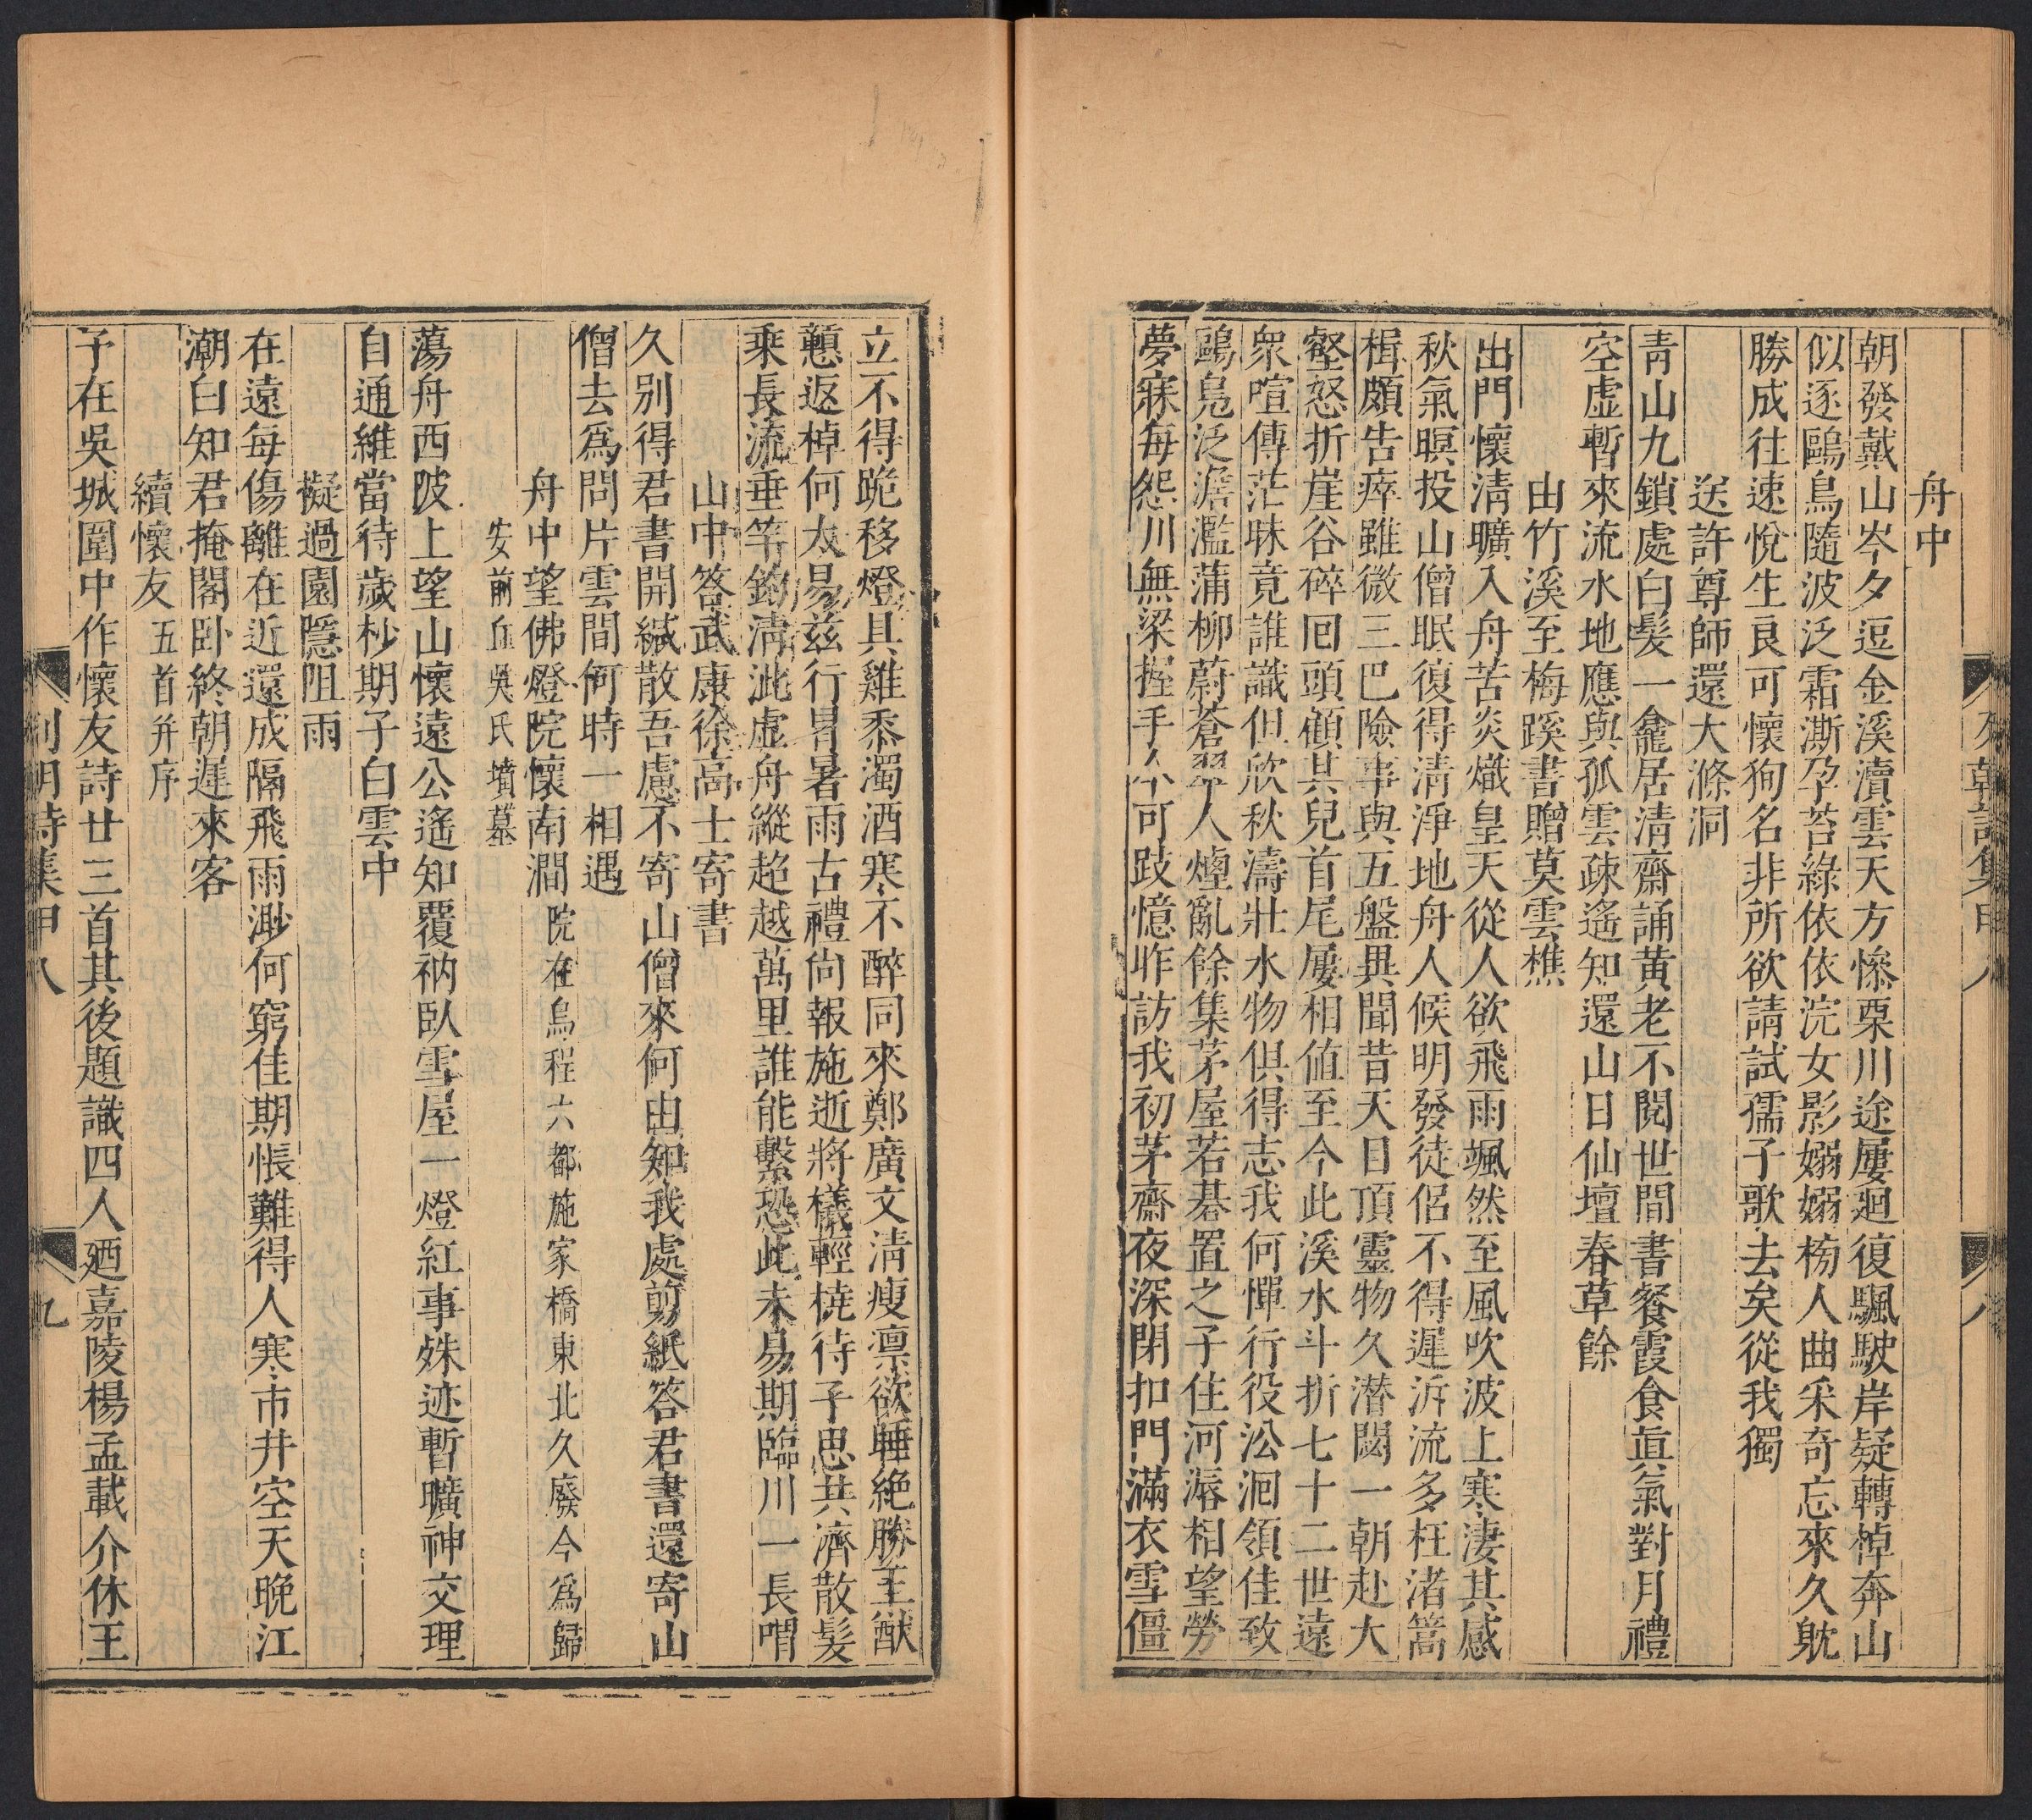 舟中
朝發戴山岑夕逗金溪瀆雲天方慘栗川途屢廻復颿駛岸疑轉棹奔山
似逐鷗鳥隨波泛霜澌孕苔綠依依浣女影嫋嫋榜人曲采奇忘來久躭
勝成往速悅生良可懷狥名非所欲請試孺子歌去矣從我獨
送許尊師還大滌洞
靑山九鎖處白髮一龕居清齋誦黃老不閱世間書餐霞食眞氣對月禮
空虛暫來流水地應與孤雲疎遙知還山日仙壇春草餘
由竹溪至梅蹊書贈莫雲樵
出門懷淸曠入舟苦炎熾皇天從人欲飛雨颯然至風吹波上寒淒其感
秋氣暝投山僧眠復得清淨地舟人候明發徒侶不得遲泝流多枉渚篙
楫頗告瘁雖微三巴險事與五盤異聞昔天目頂靈物久潜閟一朝赴大
壑怒折崖谷碎囘頭顧其兒首尾屢相値至今此溪水斗折七十二世遠
衆喧傳茫昧竟誰識但欣秋濤壯水物俱得志我何憚行役㳂洄領佳致
鷗鳬泛澹灎蒲柳蔚蒼翠人煙亂餘集茅屋若碁置之子住河漘相望勞
夢寐每怨川無梁握手不可跂憶昨訪我初茅齋夜深閉扣門滿衣雪僵
列朝詩集甲八
八
立不得跪移燈具雞黍濁酒寒不醉同來鄭廣文清瘦凛欲睡絶勝王猷
戇返棹何太易兹行冐暑雨古禮尙報施逝將檥輕橈待子思共濟散髮
乗長流垂竿釣清泚虛舟縱超越萬里誰能繫恐此未易期臨川一長喟
山中答武康徐高士寄書
久别得君書開緘散吾慮不寄山僧來何由知我處剪紙答君書還寄山
僧去爲問片雲間何時一相遇
舟中望佛燈院懷南澗院在烏程六都施家橋東北久廢今爲歸
安前丘吳氏墳墓
蕩舟西陂上望山懷遠公遙知覆衲臥雪屋一燈紅事殊迹暫曠神交理
自通維當待歲杪期子白雲中
擬過園隱阻雨
在遠每傷離在近還成隔飛雨渺何窮佳期悵難得人寒市井空天晚江
潮白知君掩閣卧終朝遲來客
續懷友五首并序
予在吳城圍中作懷友詩廿三首其後題識四人廼嘉陵楊孟載介休王
列朝詩集甲八
九